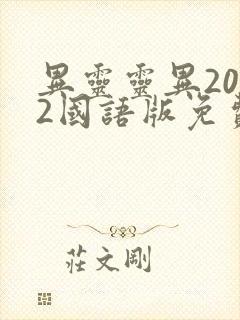 異靈靈異20
2國語版免費
莊文剛